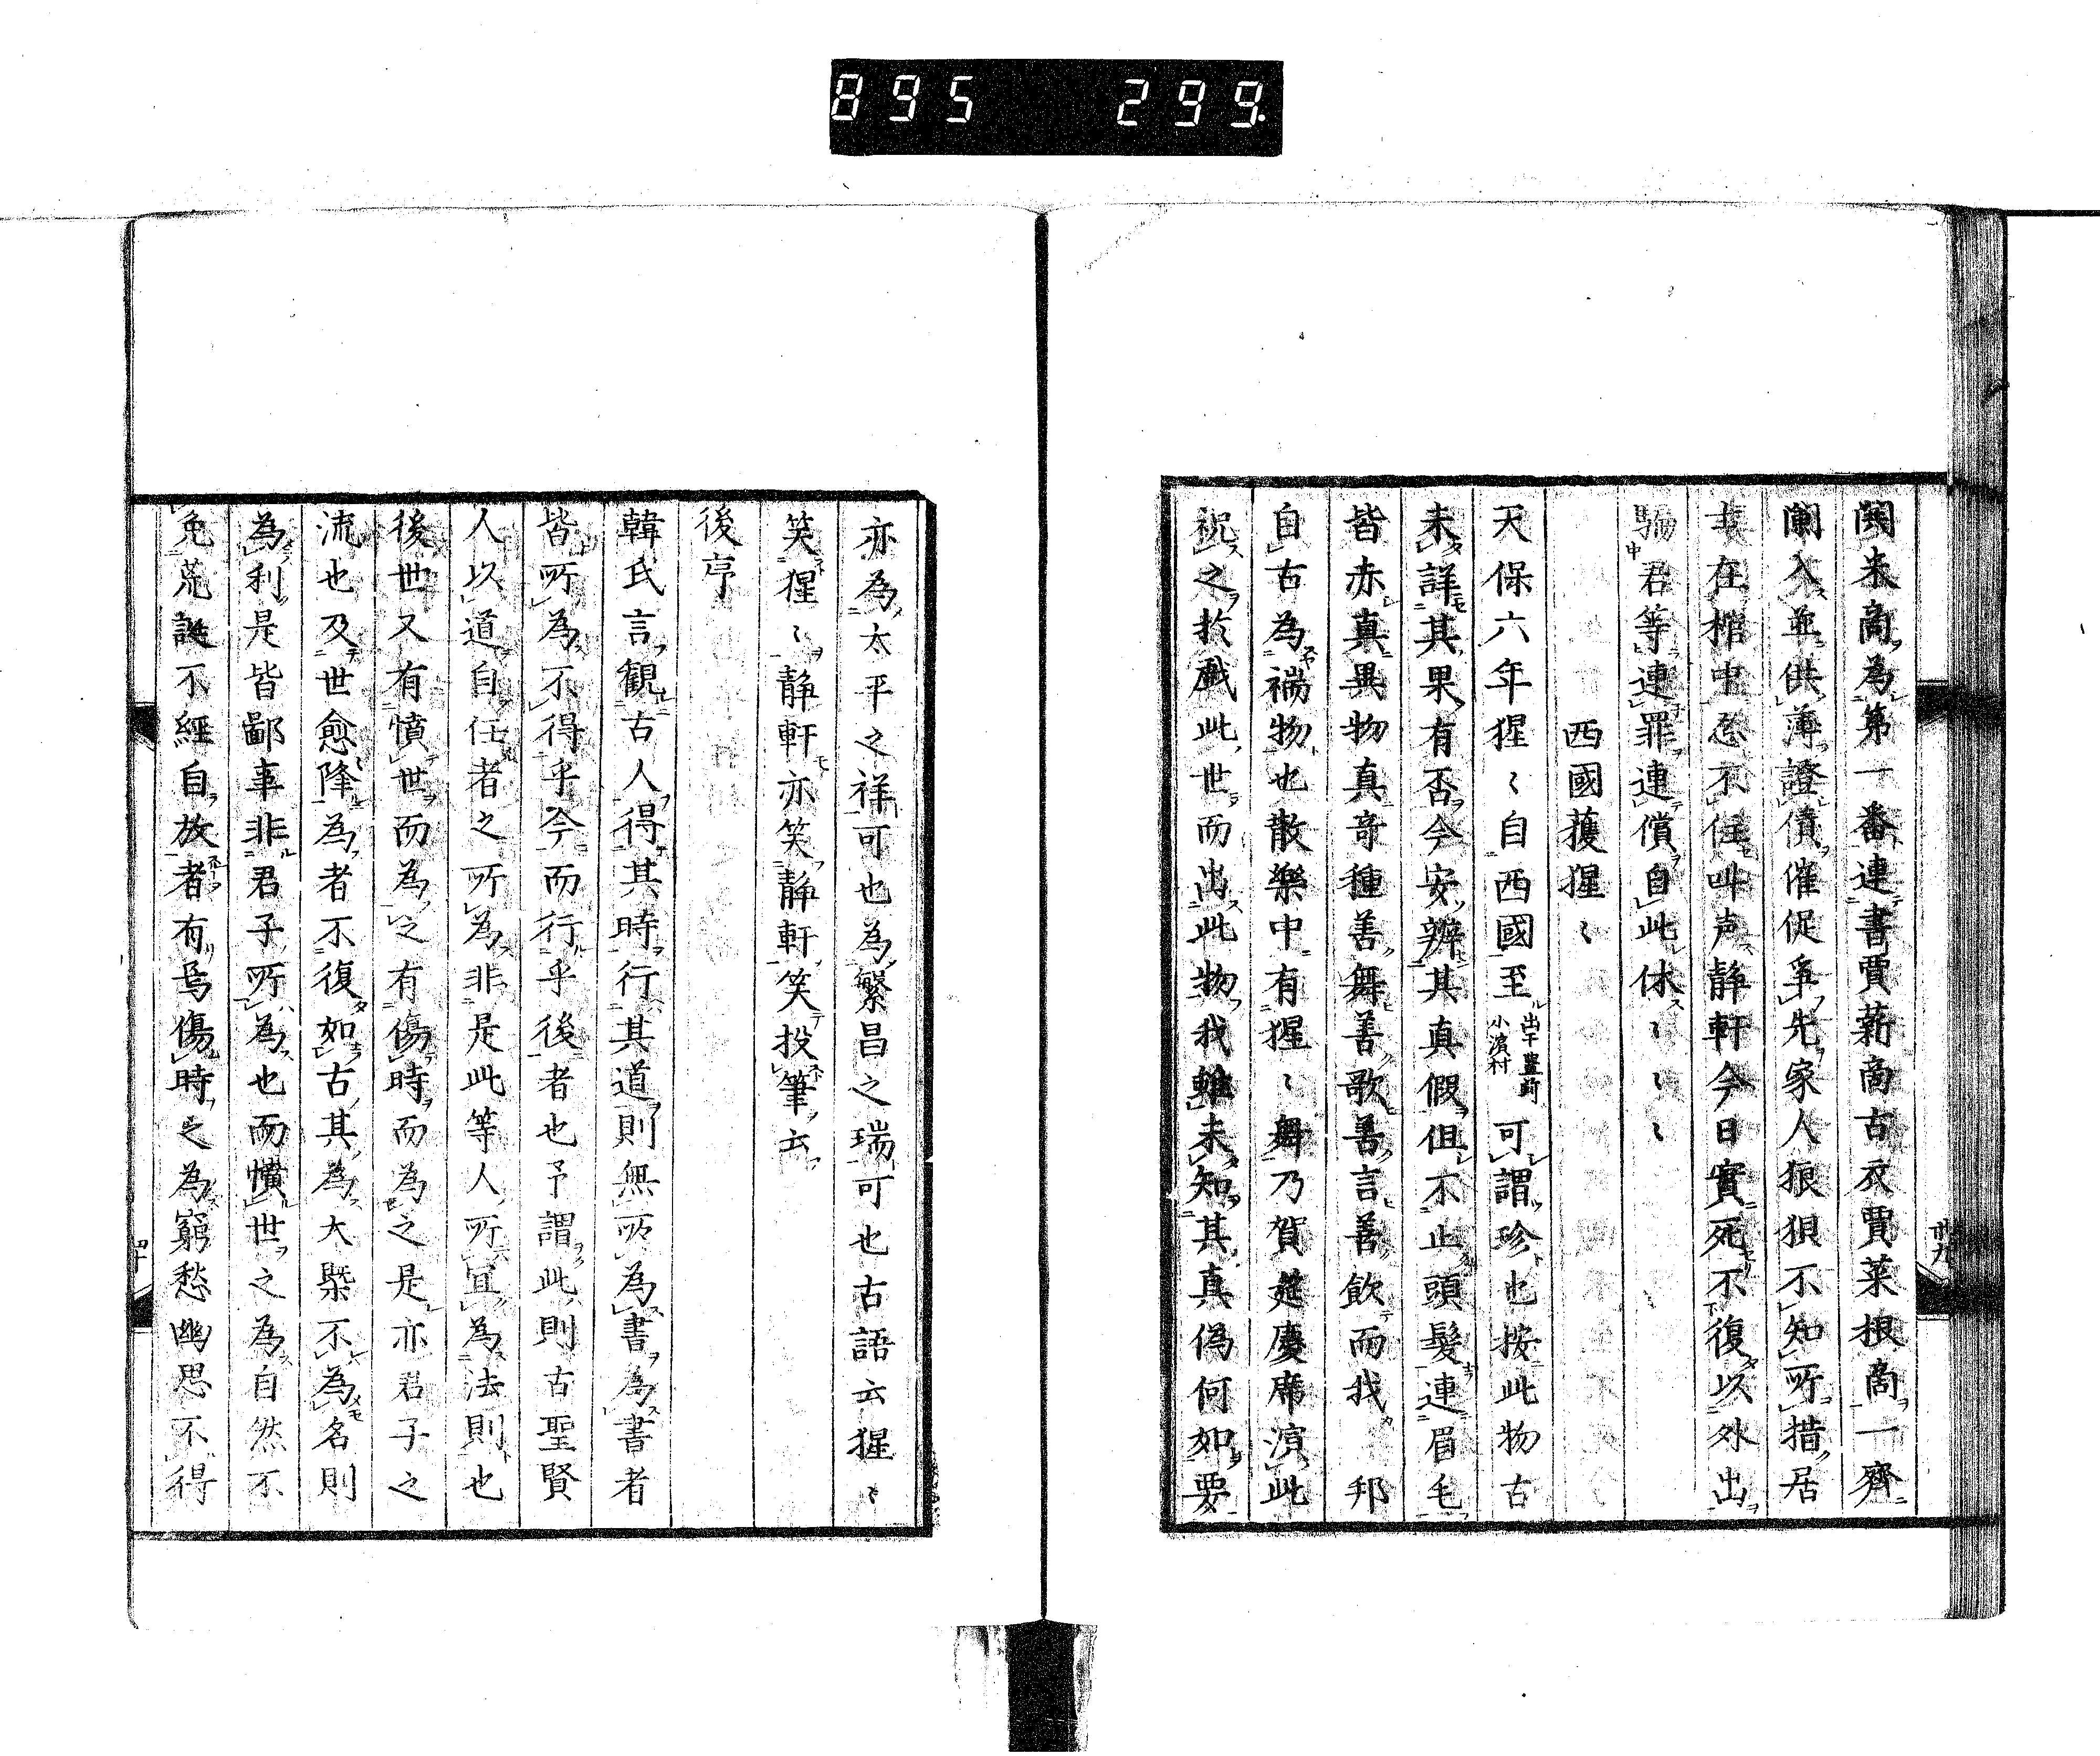 895 299
闕来商為第一番連書賈薪商古衣賈菜根商一齊
闌入並供薄證債催促爭先家人狼狽不知所措居
士在棺中忍不住叫声静軒今日實死不復以外出
騙君等連罪連償自此休〻〻〻
西國獲猩〻
天保六年猩〻自西國至出于豊前小濱村可謂珍也按此物古
未詳其果有否今安辨其真假但不止頭髪連眉毛
皆赤真異物真竒種善舞善歌善言善飲而我 邦
自古為瑞物也散樂中有猩〻舞乃賀莚慶席演此
祝之於戯此世而出此物我雖未知其真偽何如要
丗九
亦為太平之祥可也為繁昌之瑞可也古語云猩〻
笑猩〻静軒亦笑静軒笑投筆云
後序
韓氏言観古人得其時行其道則無所為書為書者
皆所為不得乎今而行乎後者也予謂此則古聖賢
人以道自任者之所為非是此等人所宜為法則也
後世又有憤世而為之有傷時而為之是亦君子之
流也及世愈降為者不復如古其為大槩不為名則
為利是皆鄙事非君子所為也而憤世之為自然不
免荒誕不經自放者有焉傷時之為窮愁幽思不得
四十